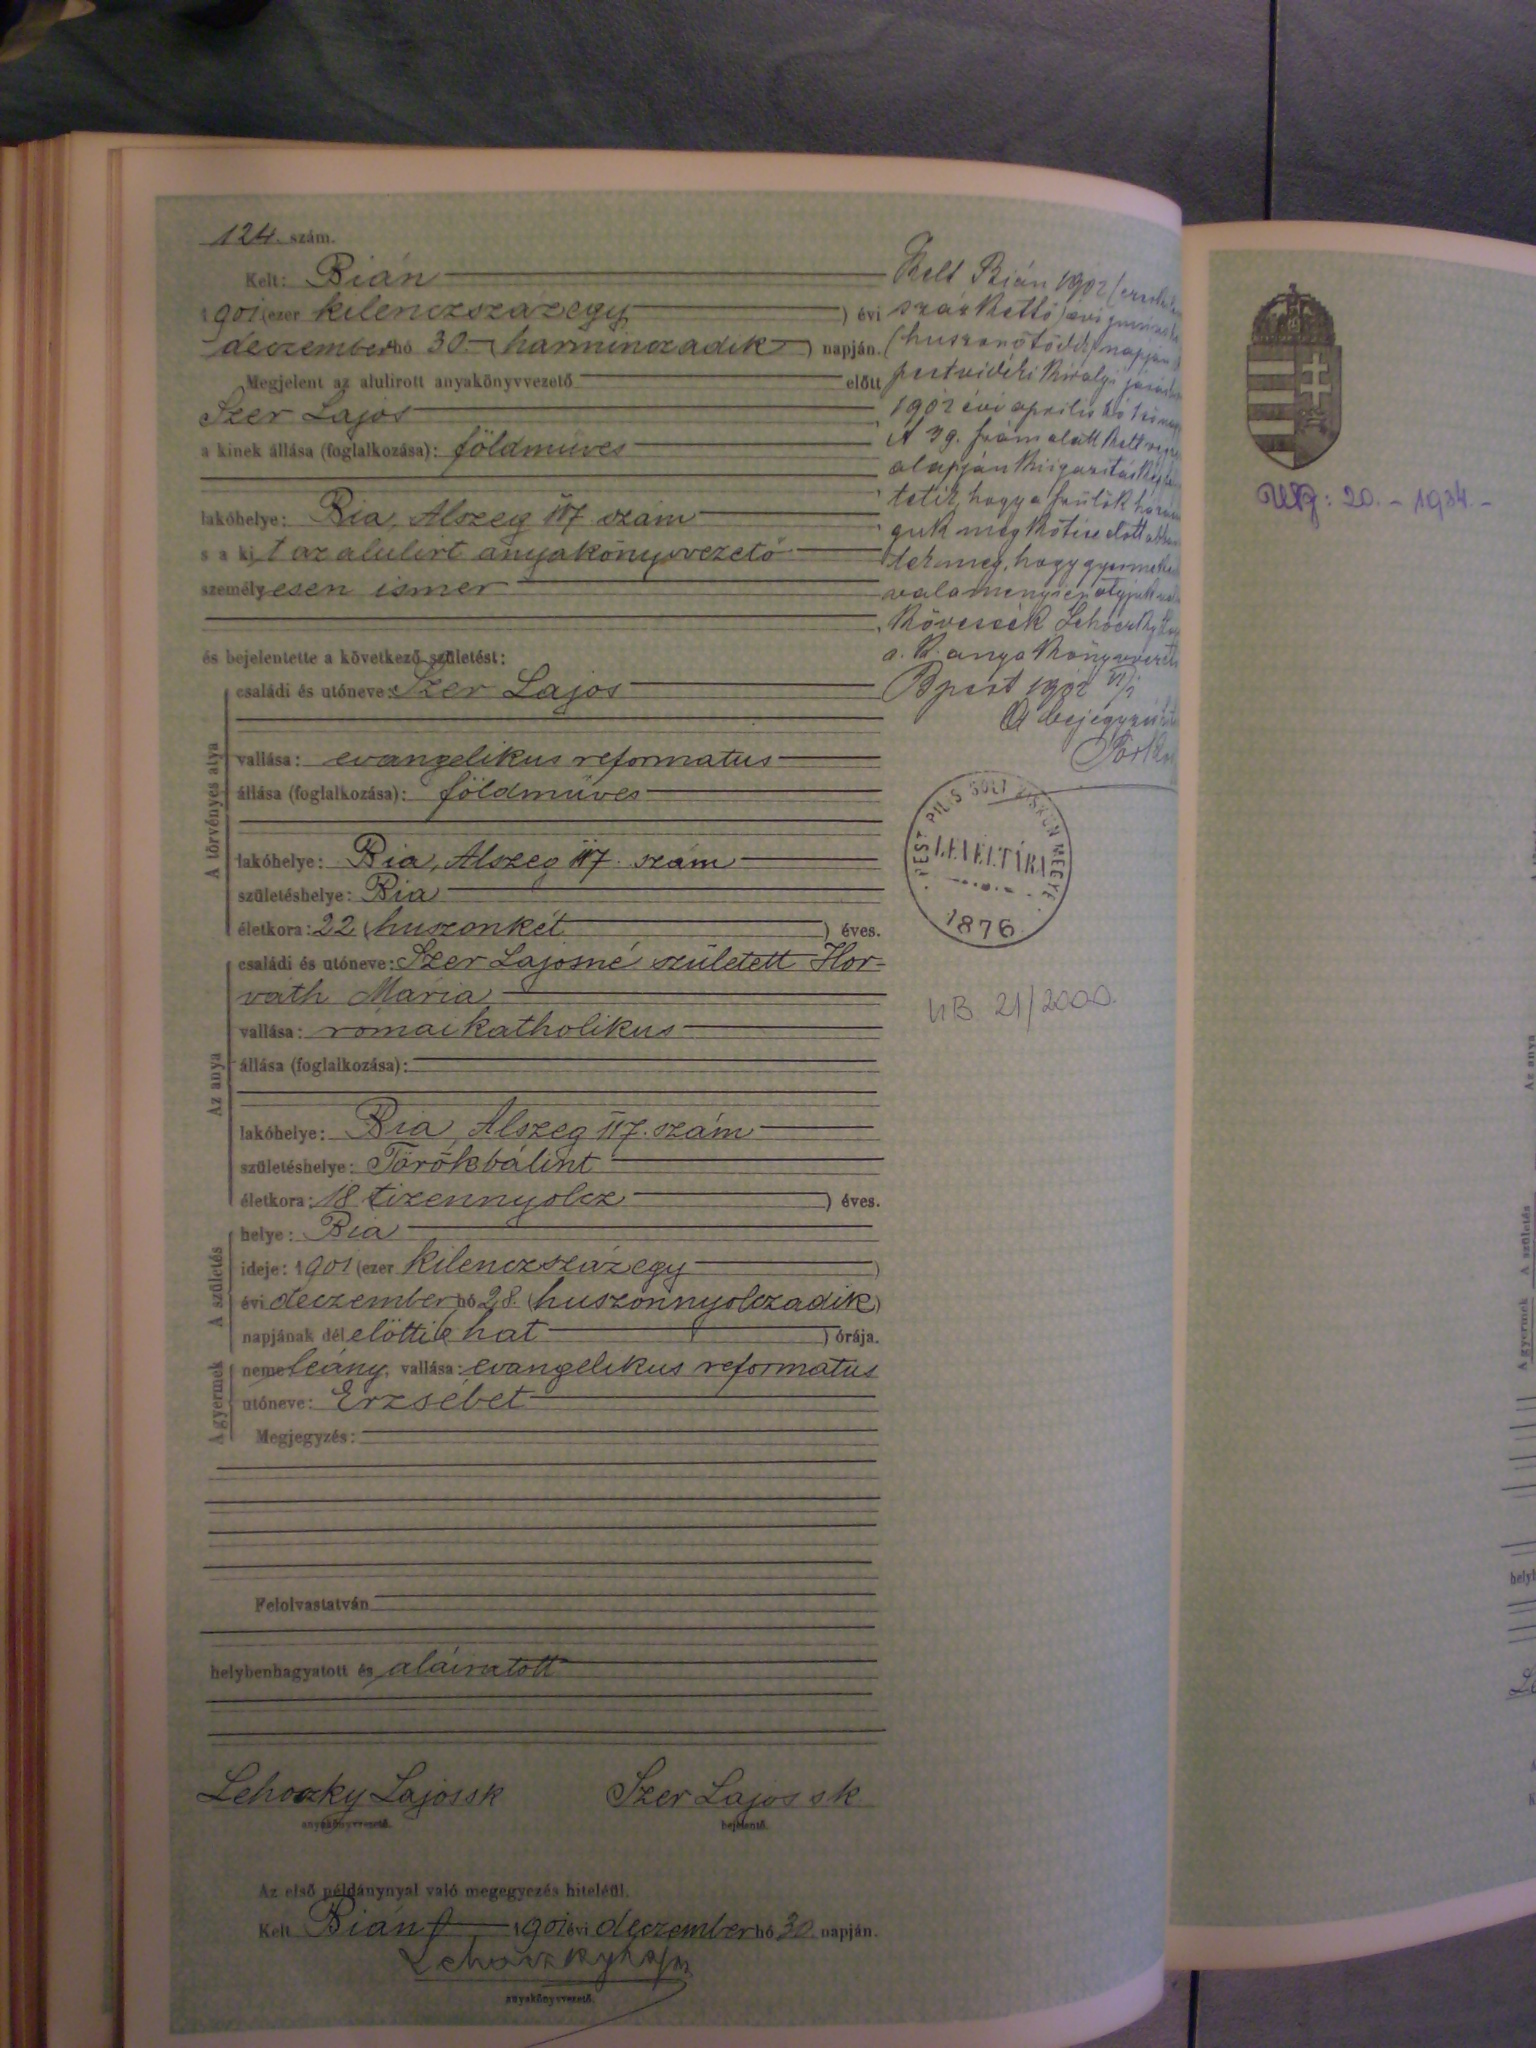 124. szám.
Kelt: Bián
1901 (ezer kilenczszázegy ) évi
deczember hó 30. (harminczadik) napján.
Megjelent az alulirott anyakönyvvezető előtt
Szer Lajos
a kinek állása (foglalkozása): földműves
lakóhelye: Bia, Alszeg 117 szám
s a kit az alulirt anyakönyvvezető
személyesen ismer
és bejelentette a következő születést:
A törvényes atya
családi és utóneve: Szer Lajos
vallása: evangelikus reformatus
állása (foglalkozása): földműves
lakóhelye: Bia, Alszeg 117. szám
születéshelye: Bia
életkora: 22 (huszonkét ) éves.
Az anya
családi és utóneve: Szer Lajosné született Hor-
váth Mária
vallása: római katholikus
állása (foglalkozása):
lakóhelye: Bia, Alszeg 117. szám
születéshelye: Törökbálint
életkora: 18 tizennyolcz ) éves.
A születés
helye: Bia
ideje: 1901 (ezer kilenczszázegy )
évi deczember hó 28. (huszonnyolczadik)
napjának délelőtti 6 hat ) órája.
A gyermek
neme leány, vallása: evangelikus reformatus
utóneve: Erzsébet
Megjegyzés:
Felolvastatván
helybenhagyatott és aláiratott
Lehoczky Lajos sk Szer Lajos sk
anyakönyvvezető. bejelentő.
Az első példánynyal való megegyezés hiteléül.
Kelt Bián 1901 évi deczember hó 30. napján.
Lehoczky Lajos
anyakönyvvezető.
Kelt Bián 1902
száz kettő) évi
(huszonötödik) napján
pestvidéki királyi
1902 évi április hó
A 39. szám alatt kelt
alapján kiigazitásképen
tetik, hogy a szülők
guk megkötése előtt
tek meg, hogy gyermekeik
valamennyien atyjuk
kövessék Lehoczky
a. k. anyakönyvvezető
Bpest 1902
A bejegyzés
PEST PILIS SOLT KISKUN MEGYE
LEVÉLTÁRA
1876
UB. 21/2000.
20. - 1934. -
Az anya
A születés
A gyermek